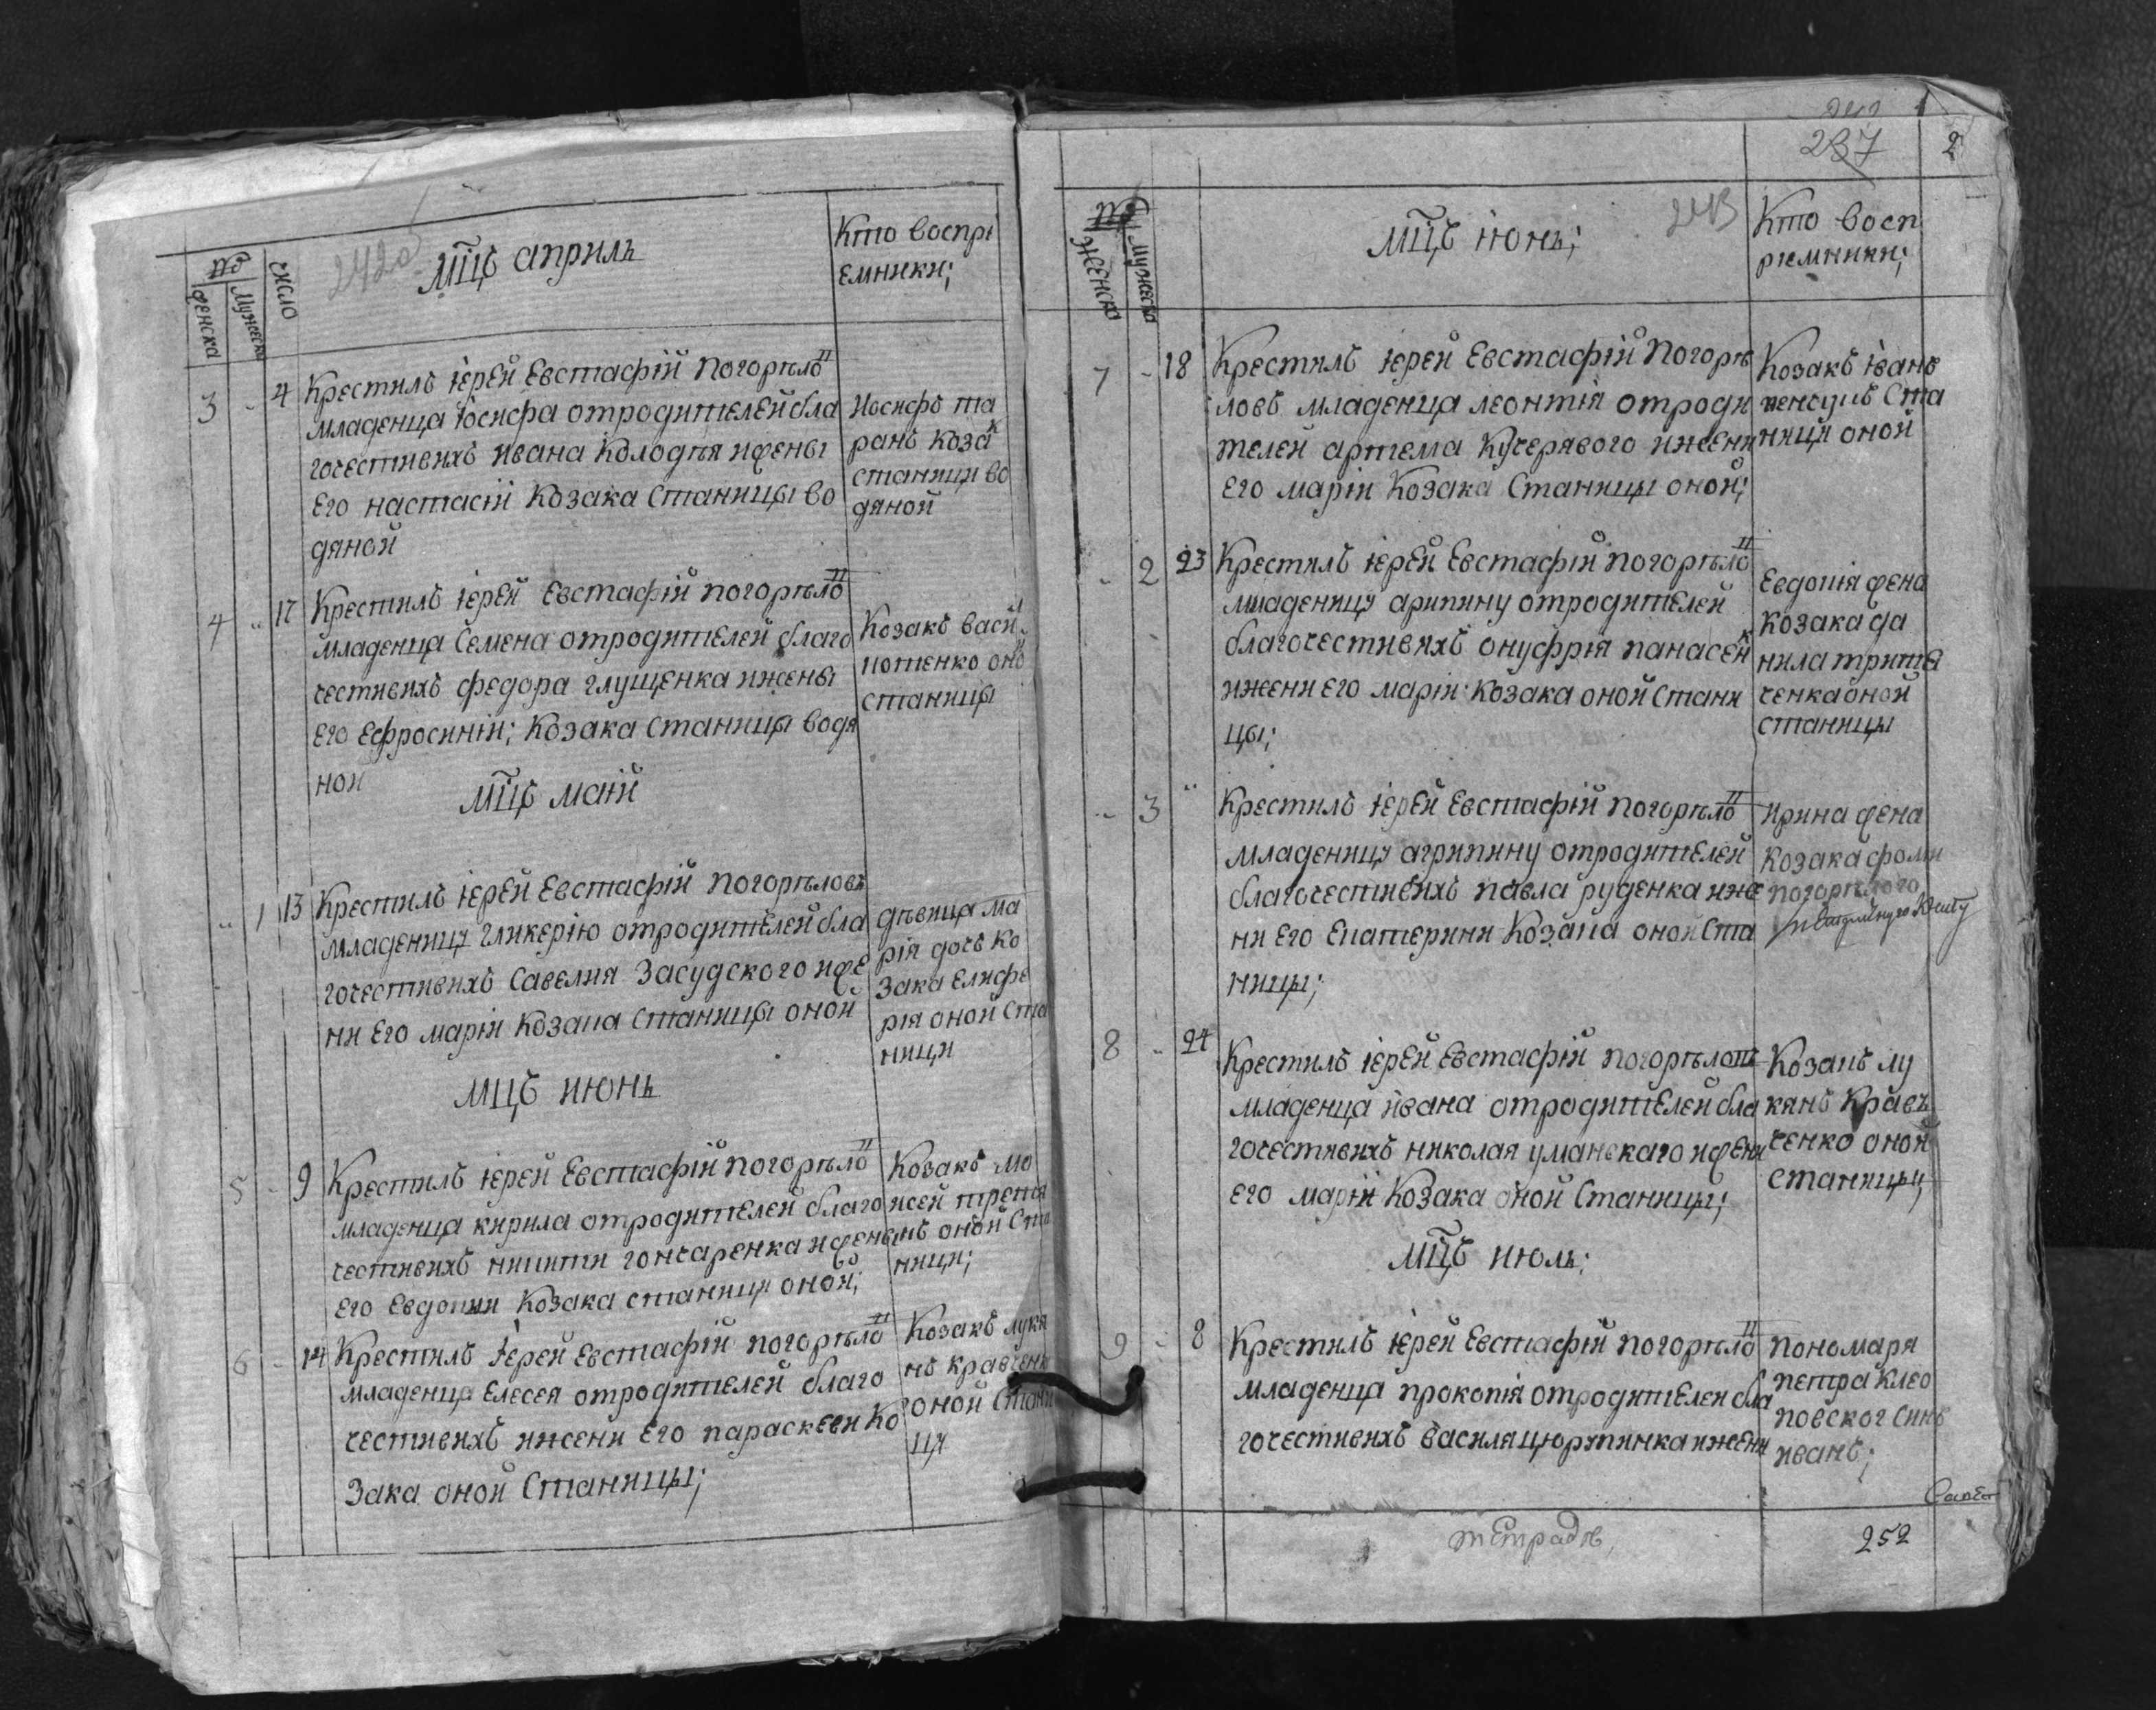 242об
№
женска
Мужеска
число
мц̃ъ априль
Кто воспрі
емники;
3 - 4
Крестилъ іерей Евстафій Погорѣло
младенца Іосифа отродителей бла
гочестивихъ ивана Колодѣя ижены
Его настасіи Козака Станицы во
дяной
Иосифъ та
ранъ козак
станици во
дяной
4 - 17
Крестилъ іерей Евстафій погорѣло
младенца Семена отродителей благо
честивихъ федора глущенка ижены
Его Ефросиніи; Козака Станицы водя
ной
Козакъ васи
потенко оно
станицы
мц̃ъ маій
- 1 13
Крестилъ іерей Евстафій Погорѣловъ
младеницу гликерію отродителей бла
гочестивихъ Савелия Засудского иже
ни Его маріи Козака Станицы оной
дѣвица ма
рія дочь ко
зака Елифе
рія оной Ста
ници
мцъ июнь
5 - 9
Крестилъ іерей Евстафій погорѣло
младенца кирила отродителей благо
честивихъ никити гончаренка ижены
Его Евдокии Козака станици оной;
Козакъ мо
исей
оной Ста
ници;
6 - 14
Крестилъ іерей Евстафій погорѣло
младенца Елесея отродителей благо
честивихъ ижени Его параскеви Ко
зака оной Станицы;
Козакъ лукя
нъ кравченк
оной Стани
ци
237
2
243
№
женска
Мужеска
мц̃ъ іюнь;
Кто восп
риемники;
7 - 18
Крестилъ іерей Евстафій Погорѣ
ловъ младенца леонтія отроди
телей артема Кучерявого ижени
Его маріи Козака Станицы оной;
Козакъ іванъ
Ста
ници оной
- 2 23
Крестилъ іерей Евстафій погорѣло
младеницу арипину отродителей
благочестивихъ онуфрія панасенк
ижени Его маріи Козака оной Стани
цы;
Евдокія жена
Козака да
нила
ченка оной
станицы
- 3 "
Крестилъ іерей Евстафій погорѣло
младеницу агрипину отродителей
благочестивихъ павла руденка иже
ни Его Екатерини Козака оной Ста
ницы;
Ирина жена
козака фоми
погорѣлого
8 - 24
Крестилъ іерей Евстафій погорѣловъ
младенца ивана отродителей бла
гочестивихъ николая уманского ижени
Его маріи Козака оной Станицы;
Козакъ лу
кянъ Кравъ
ченко оной
станицы;
мц̃ъ июль;
9 - 8
Крестилъ іерей Евстафій погорѣло
младенца прокопія отродителей бла
гочестивихъ василя цюрупинка ижени
пономаря
петра Клео
повског синъ
иванъ;
тетрадь
252